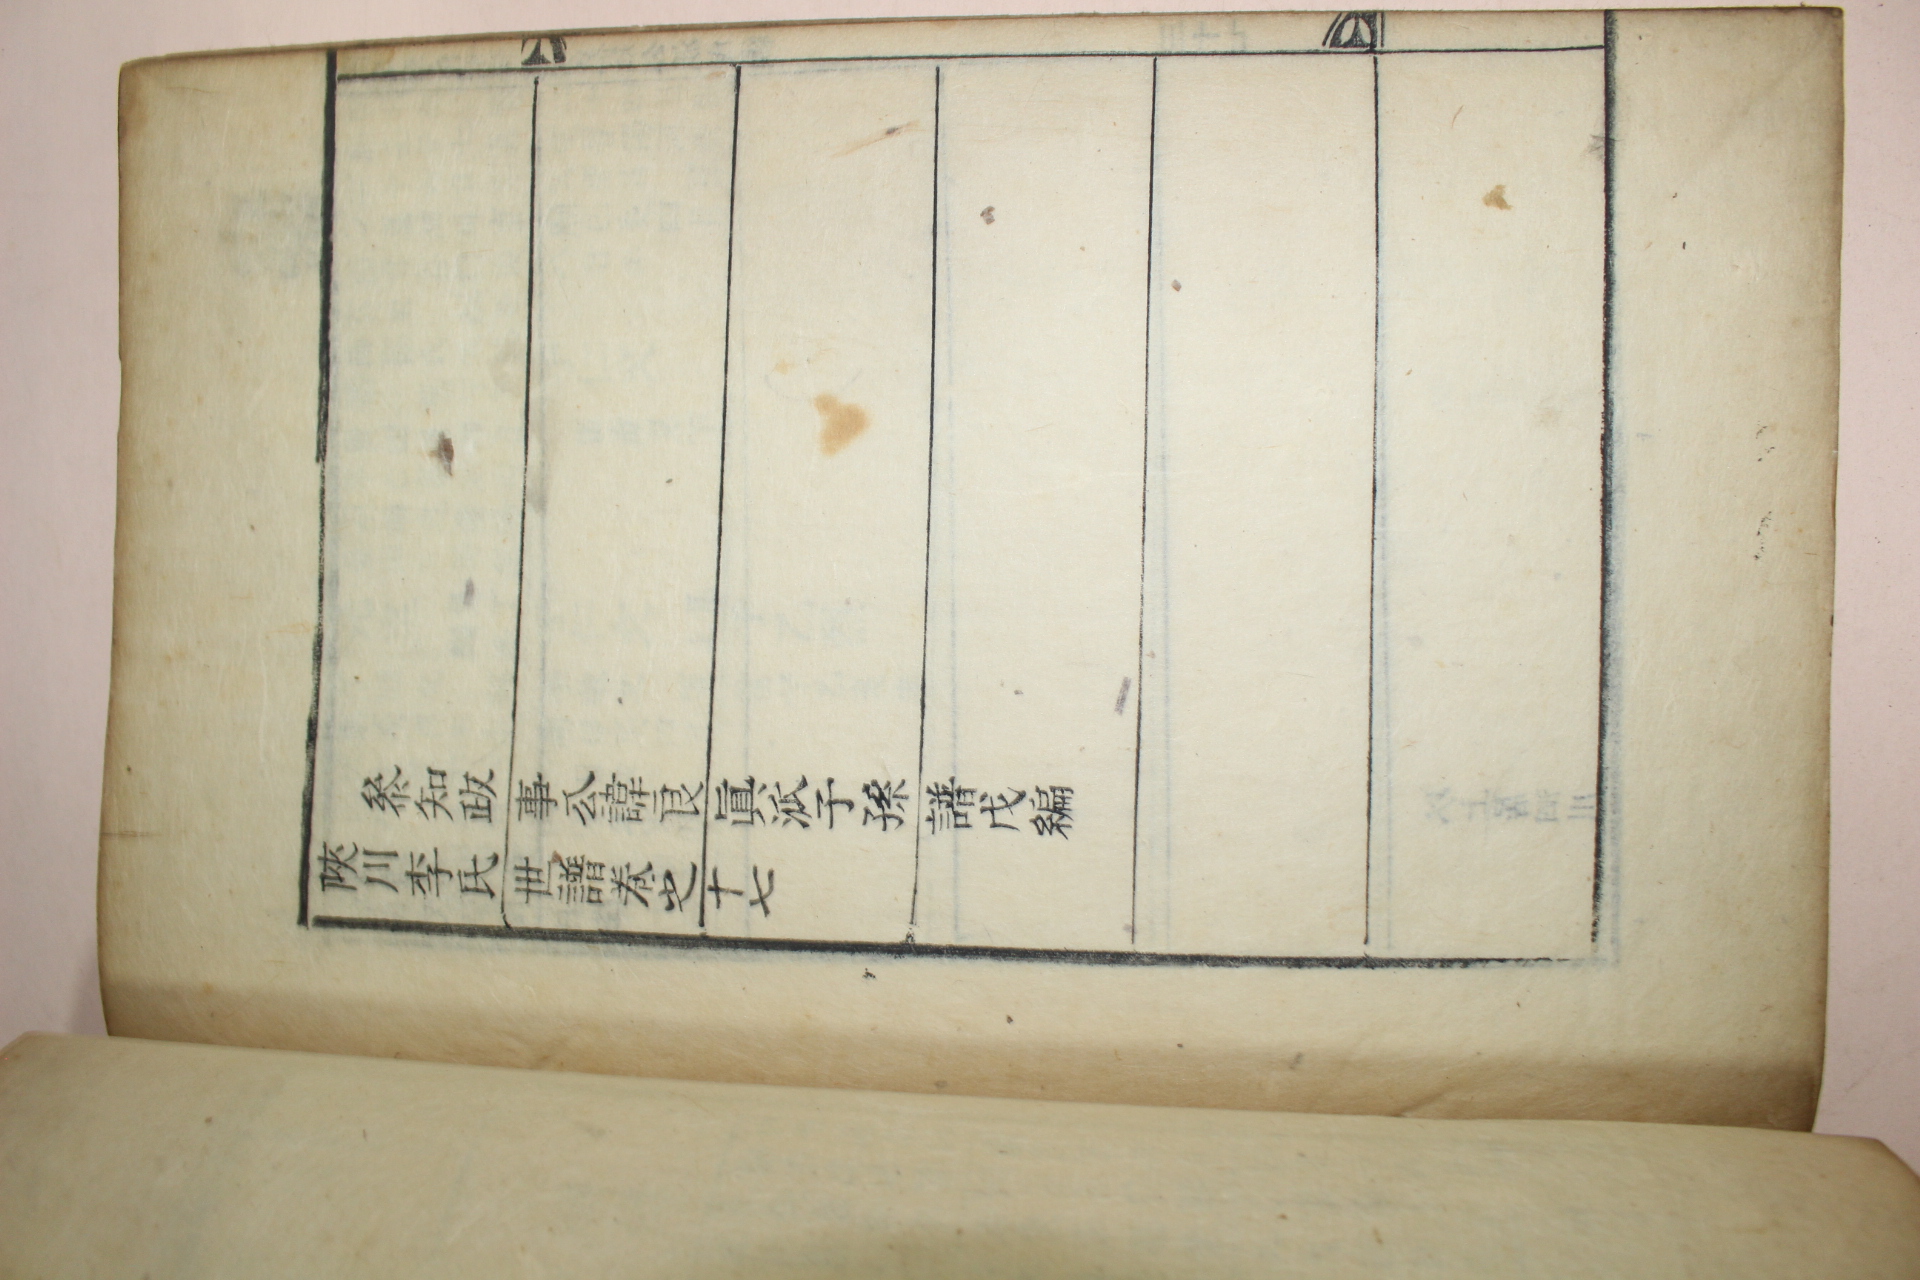 陜川李氏世譜卷之十七
叅知政事公諱良眞派子孫譜戊編